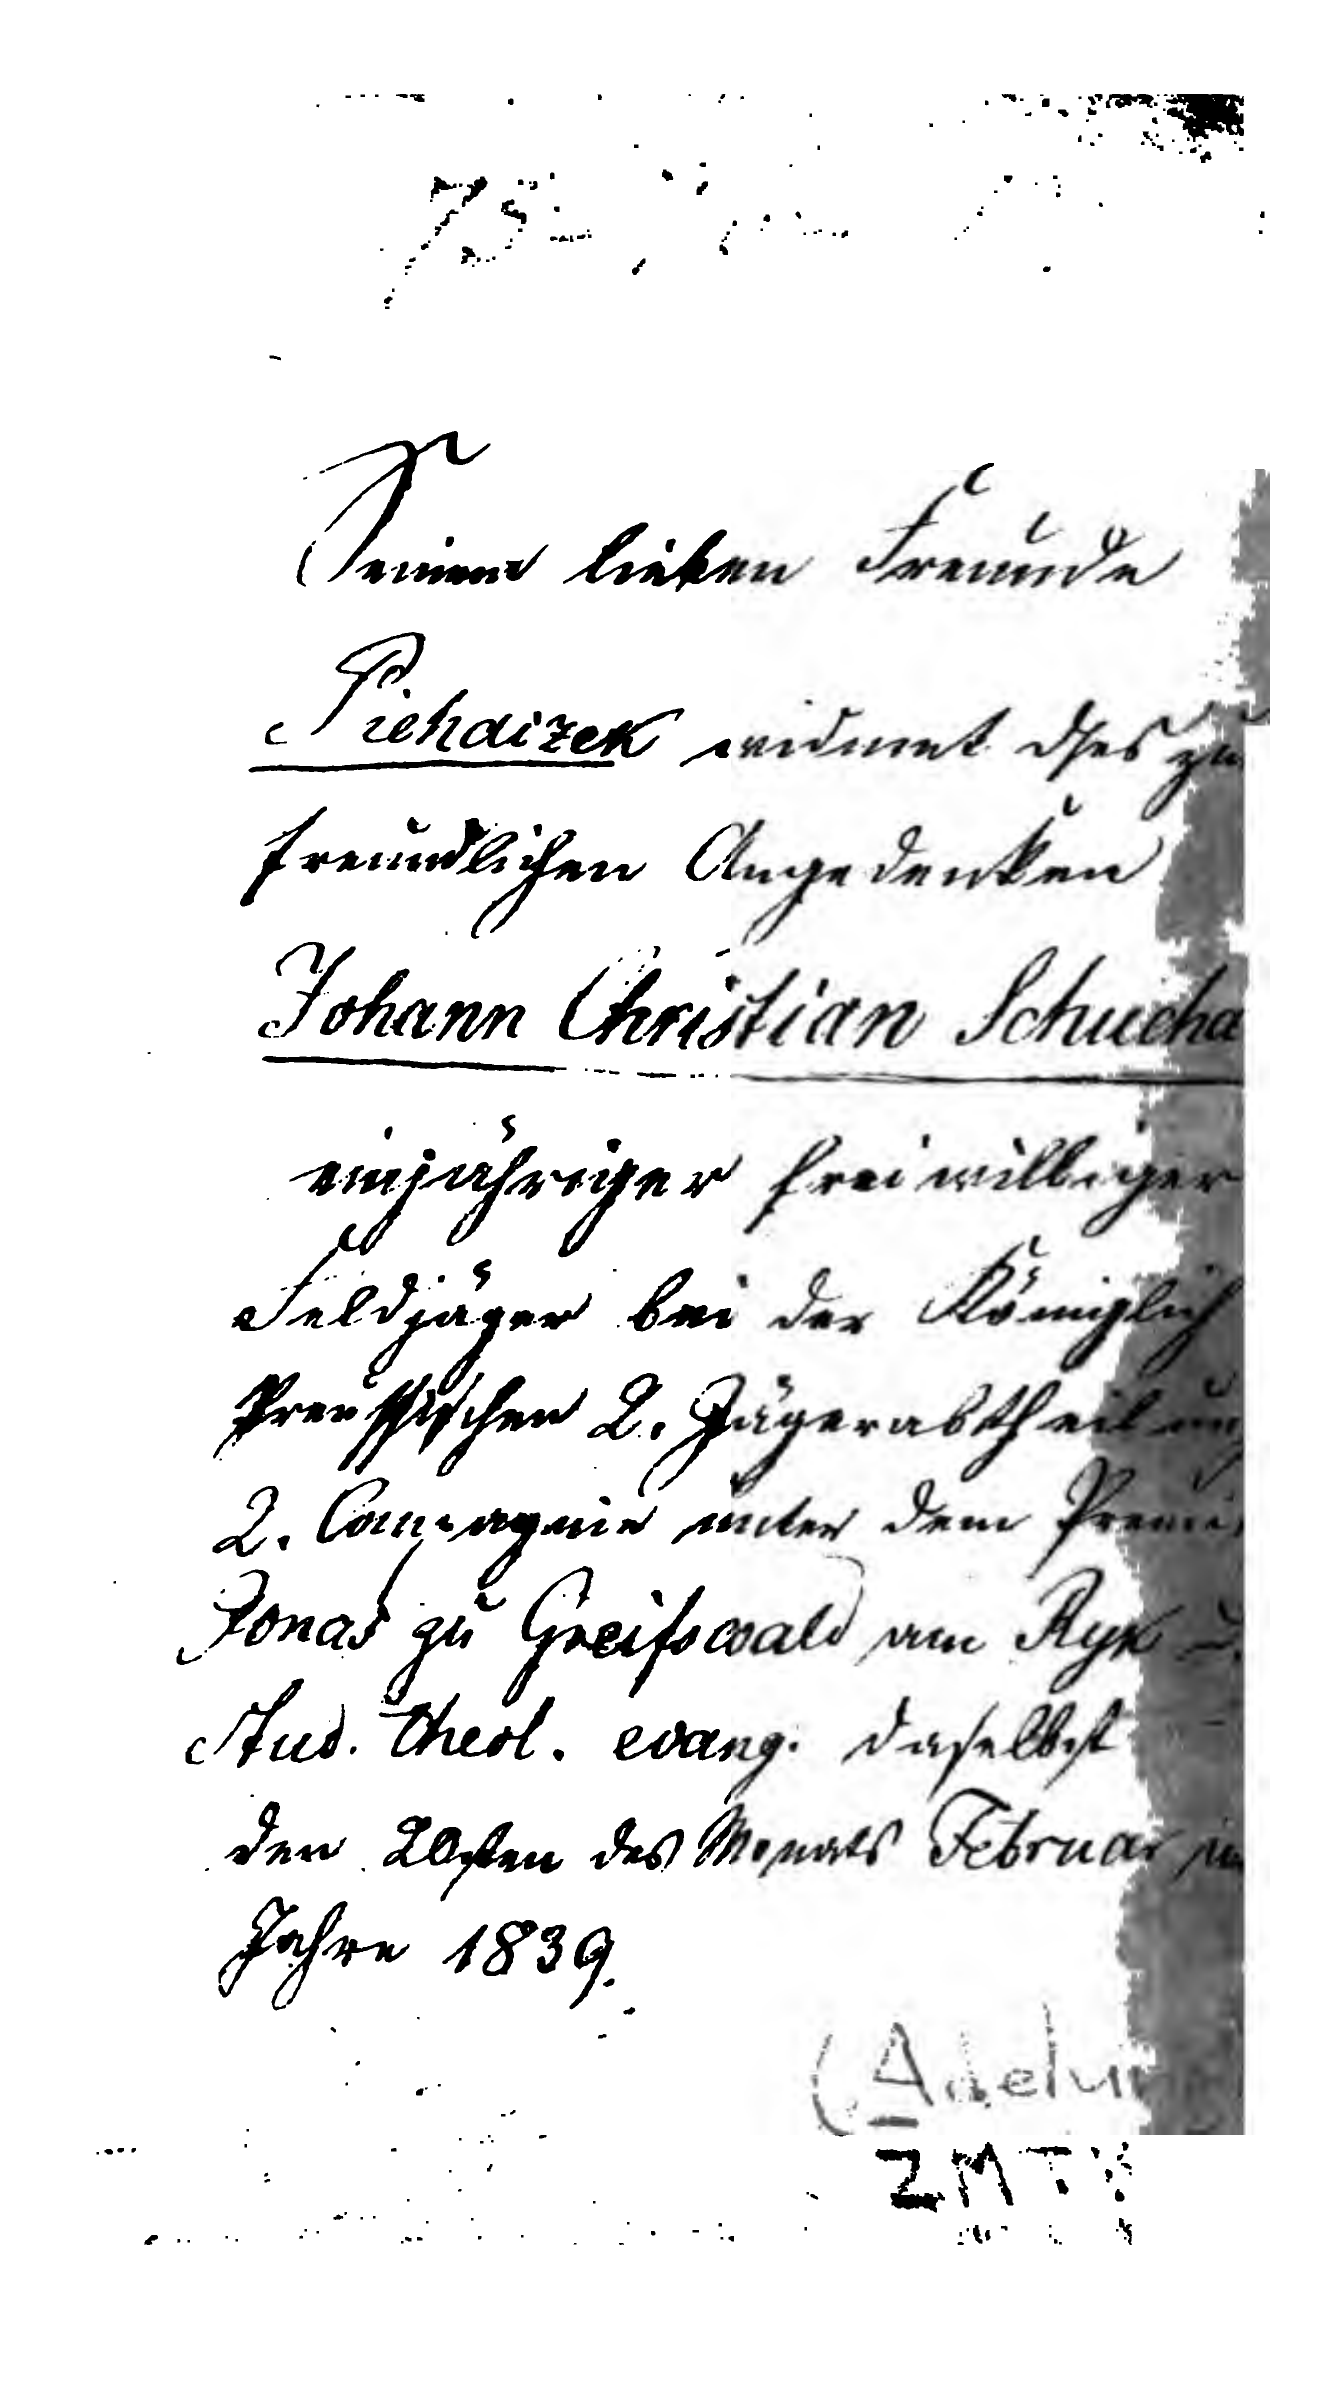 Seinem lieben Freunde
Piehaizek widmet dses zu
freundlichen Angedenken
Johann Christian Schucha
einjähriger freiwilliger
Feldjäger bei der Königlich
Preussischen 2. Jägerabtheilung
2. Compagnie unter dem
Jonas zu Greifswald am Ryk
Stud. theol. evang. daselbst
den 20sten des Monats Februar im
Jahre 1839.
(Adelun